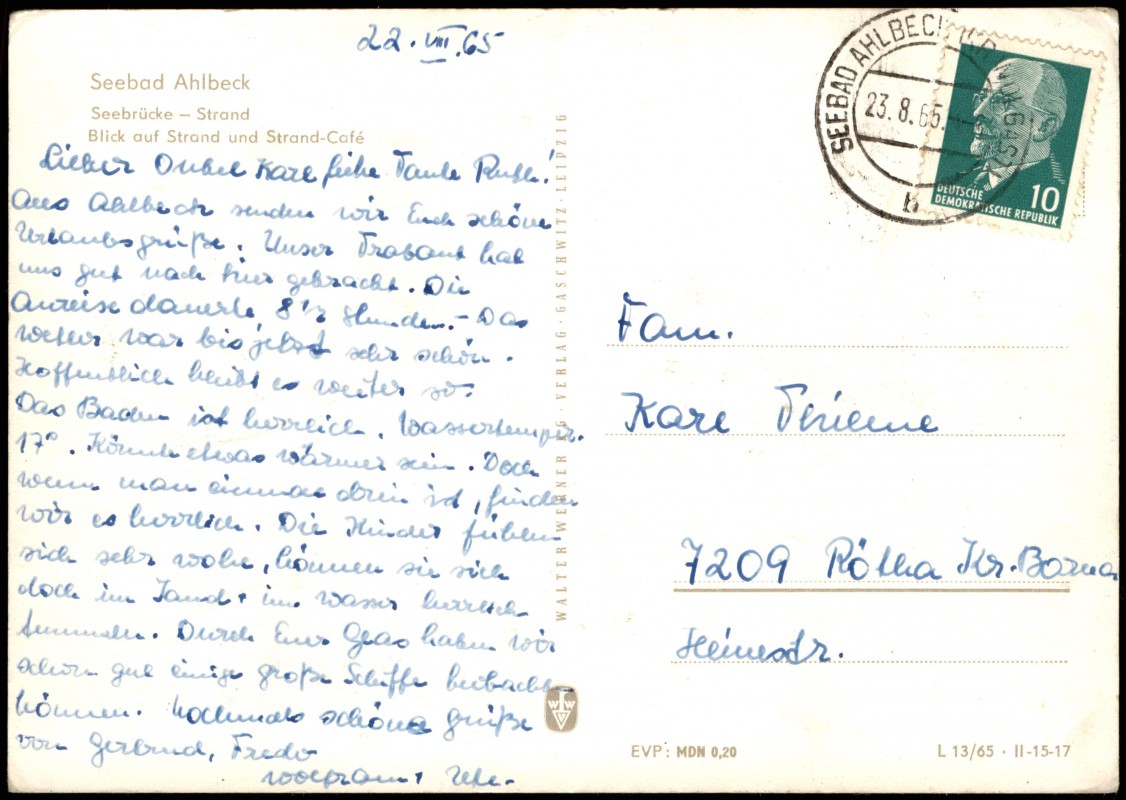 22. VIII. 65
Seebad Ahlbeck
Seebrücke – Strand
Blick auf Strand und Strand-Café
Lieber Onkel Karl liebe Tante Ruth!
Aus Ahlbeck senden wir Euch schöne
Urlaubsgrüße. Unser Trabant hat
uns gut nach hier gebracht. Die
Anreise dauerte 8 1/2 Stunden. – Das
Wetter war bis jetzt sehr schön.
Hoffentlich bleibt es weiter so.
Das Baden ist herrlich. Wassertemper.
17°. Könnte etwas wärmer sein. Doch
wenn man einmal drin ist, finden
wir es herrlich. Die Kinder fühlen
sich sehr wohl, können sie sich
doch im Sand + im Wasser herrlich
tummeln. Durch Euer Glas haben wir
schon gut einige große Schiffe beobachten
können. Nochmals schöne Grüße
von Gertrud, Fredo
Wolfram + Ute.
WALTER WERNER KG · VERLAG · GASCHWITZ · LEIPZIG
WW
SEEBAD AHLBECK
23.8.65.
b
DEUTSCHE
DEMOKRATISCHE REPUBLIK
10
Fam.
Karl Thieme
7209 Rötha Kr. Borna
Heinestr.
EVP: MDN 0,20
L 13/65 · II-15-17